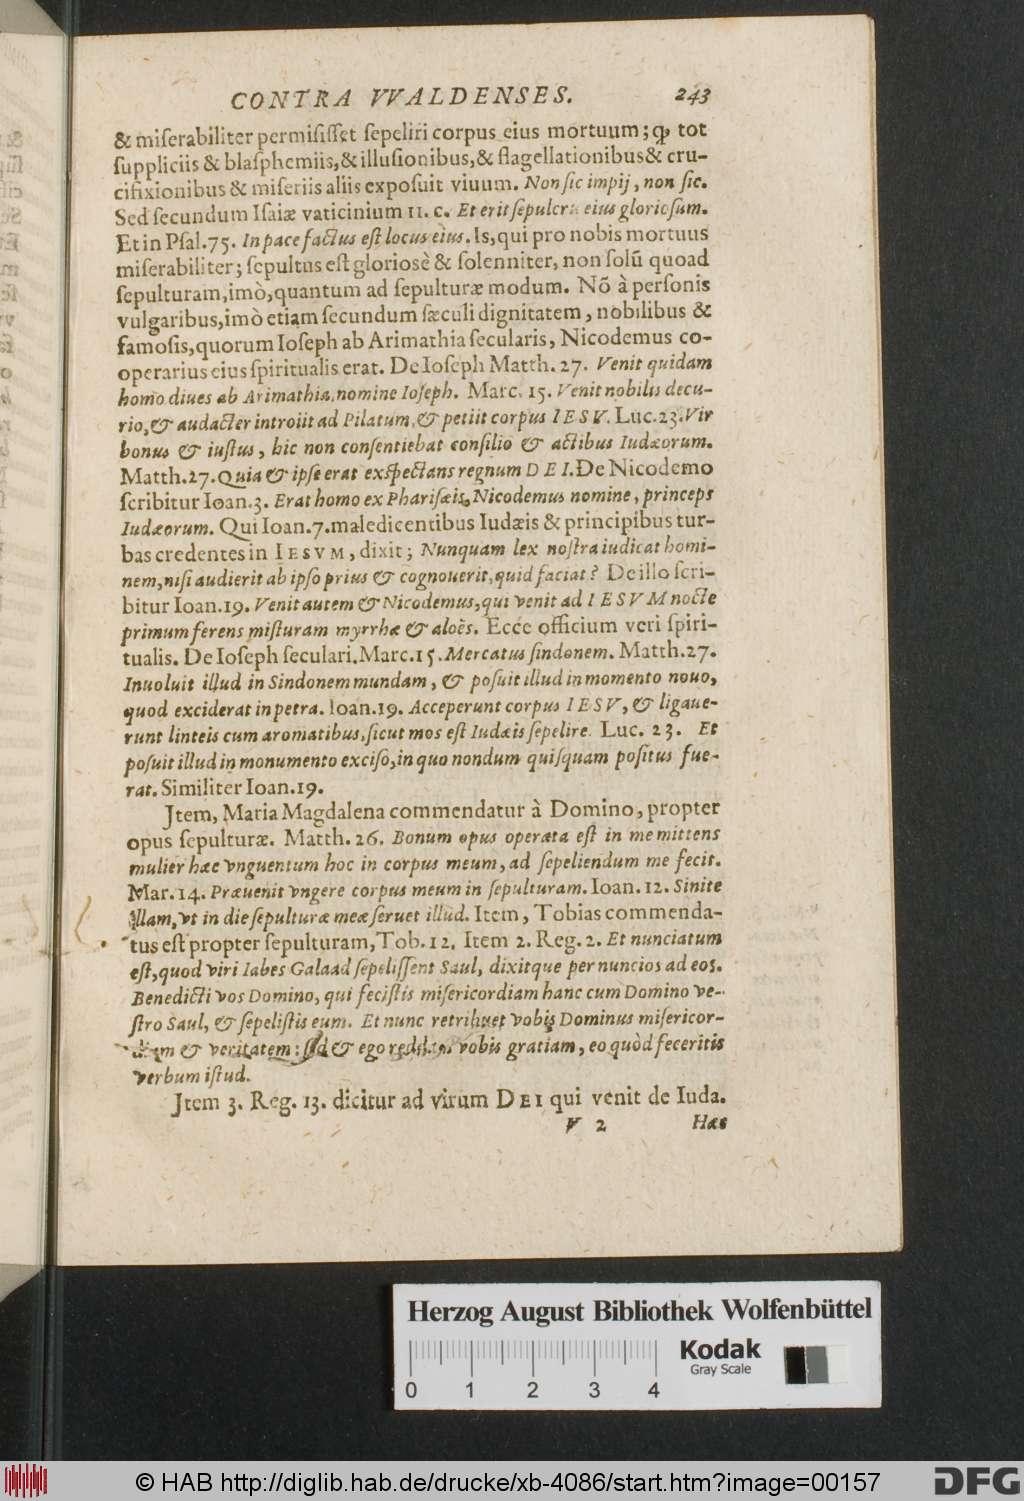 CONTRA VVALDENSES. 243
& miſerabiliter permiſiſſet ſepeliri corpus eius mortuum; ꝙ tot
ſuppliciis & blaſphemiis, & illuſionibus, & flagellationibus & cru-
cifixionibus & miſeriis aliis expoſuit viuum. Non ſic impij, non ſic.
Sed ſecundum Iſaiæ vaticinium 11. c. Et erit ſepulcrū eius glorioſum.
Et in Pſal. 75. In pace factus eſt locus eius. Is, qui pro nobis mortuus
miſerabiliter; ſepultus eſt glorioſè & ſolenniter, non ſolũ quoad
ſepulturam, imò, quantum ad ſepulturæ modum. Nõ à perſonis
vulgaribus, imò etiam ſecundum ſæculi dignitatem, nobilibus &
famoſis, quorum Ioſeph ab Arimathia ſecularis, Nicodemus co-
operarius eius ſpiritualis erat. De Ioſeph Matth. 27. Venit quidam
homo diues ab Arimathia, nomine Ioſeph. Marc. 15. Venit nobilis decu-
rio, & audacter introiit ad Pilatum, & petiit corpus IESV. Luc. 23. Vir
bonus & iuſtus, hic non conſentiebat conſilio & actibus Iudæorum.
Matth. 27. Quia & ipſe erat exſpectans regnum DEI. De Nicodemo
ſcribitur Ioan. 3. Erat homo ex Phariſæis, Nicodemus nomine, princeps
Iudæorum. Qui Ioan. 7. maledicentibus Iudæis & principibus tur-
bas credentes in IESVM, dixit; Nunquam lex noſtra iudicat homi-
nem, niſi audierit ab ipſo prius & cognouerit, quid faciat? De illo ſcri-
bitur Ioan. 19. Venit autem & Nicodemus, qui venit ad IESVM nocte
primum ferens miſturam myrrhæ & aloës. Ecce officium veri ſpiri-
tualis. De Ioſeph ſeculari. Marc. 15. Mercatus ſindonem. Matth. 27.
Inuoluit illud in Sindonem mundam, & poſuit illud in momento nouo,
quod exciderat in petra. Ioan. 19. Acceperunt corpus IESV, & ligaue-
runt linteis cum aromatibus, ſicut mos eſt Iudæis ſepelire. Luc. 23. Et
poſuit illud in monumento exciſo, in quo nondum quiſquam poſitus fue-
rat. Similiter Ioan. 19.
Item, Maria Magdalena commendatur à Domino, propter
opus ſepulturæ. Matth. 26. Bonum opus operata eſt in me mittens
mulier hæc vnguentum hoc in corpus meum, ad ſepeliendum me fecit.
Mar. 14. Præuenit vngere corpus meum in ſepulturam. Ioan. 12. Sinite
illam, vt in die ſepulturæ meæ ſeruet illud. Item, Tobias commenda-
tus eſt propter ſepulturam, Tob. 12. Item 2. Reg. 2. Et nunciatum
eſt, quod viri Iabes Galaad ſepeliſſent Saul, dixitque per nuncios ad eos.
Benedicti vos Domino, qui feciſtis miſericordiam hanc cum Domino ve-
ſtro Saul, & ſepeliſtis eum. Et nunc retribuet vobis Dominus miſericor-
diam & veritatem: ſed & ego reddam vobis gratiam, eo quòd feceritis
verbum iſtud.
Item 3. Reg. 13. dicitur ad virum DEI qui venit de Iuda.
V 2 Hæc
Herzog August Bibliothek Wolfenbüttel
Kodak
Gray Scale
0 1 2 3 4
© HAB http://diglib.hab.de/drucke/xb-4086/start.htm?image=00157
DFG